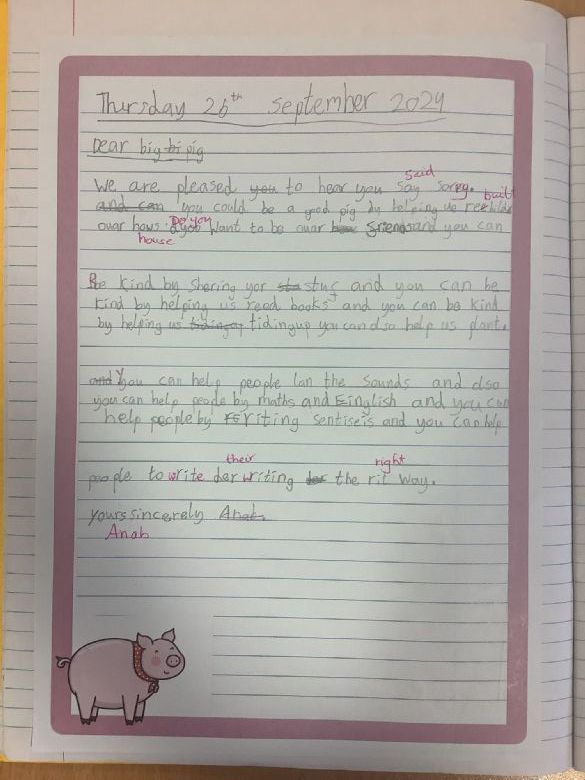 Thursday 26th September 2024
Dear big bi pig
said
We are pleased you to hear you say sorry. built
and can you could be a good pig by helping us rebbilds
Do you
ouar hows. d you Want to be ouar friend and you can
house
Be kind by Sharing yor sta stuf and you can be
kind by helping us read books and you can be kind
by helping us tidingup you can also help us plant.
and You can help people lan the sounds and also
you can help peode by maths and Einglish and you can
help people by riting sentiseis and you can help
their right
people to write der writing the rit way.
yours sincerely Anab.
Anab